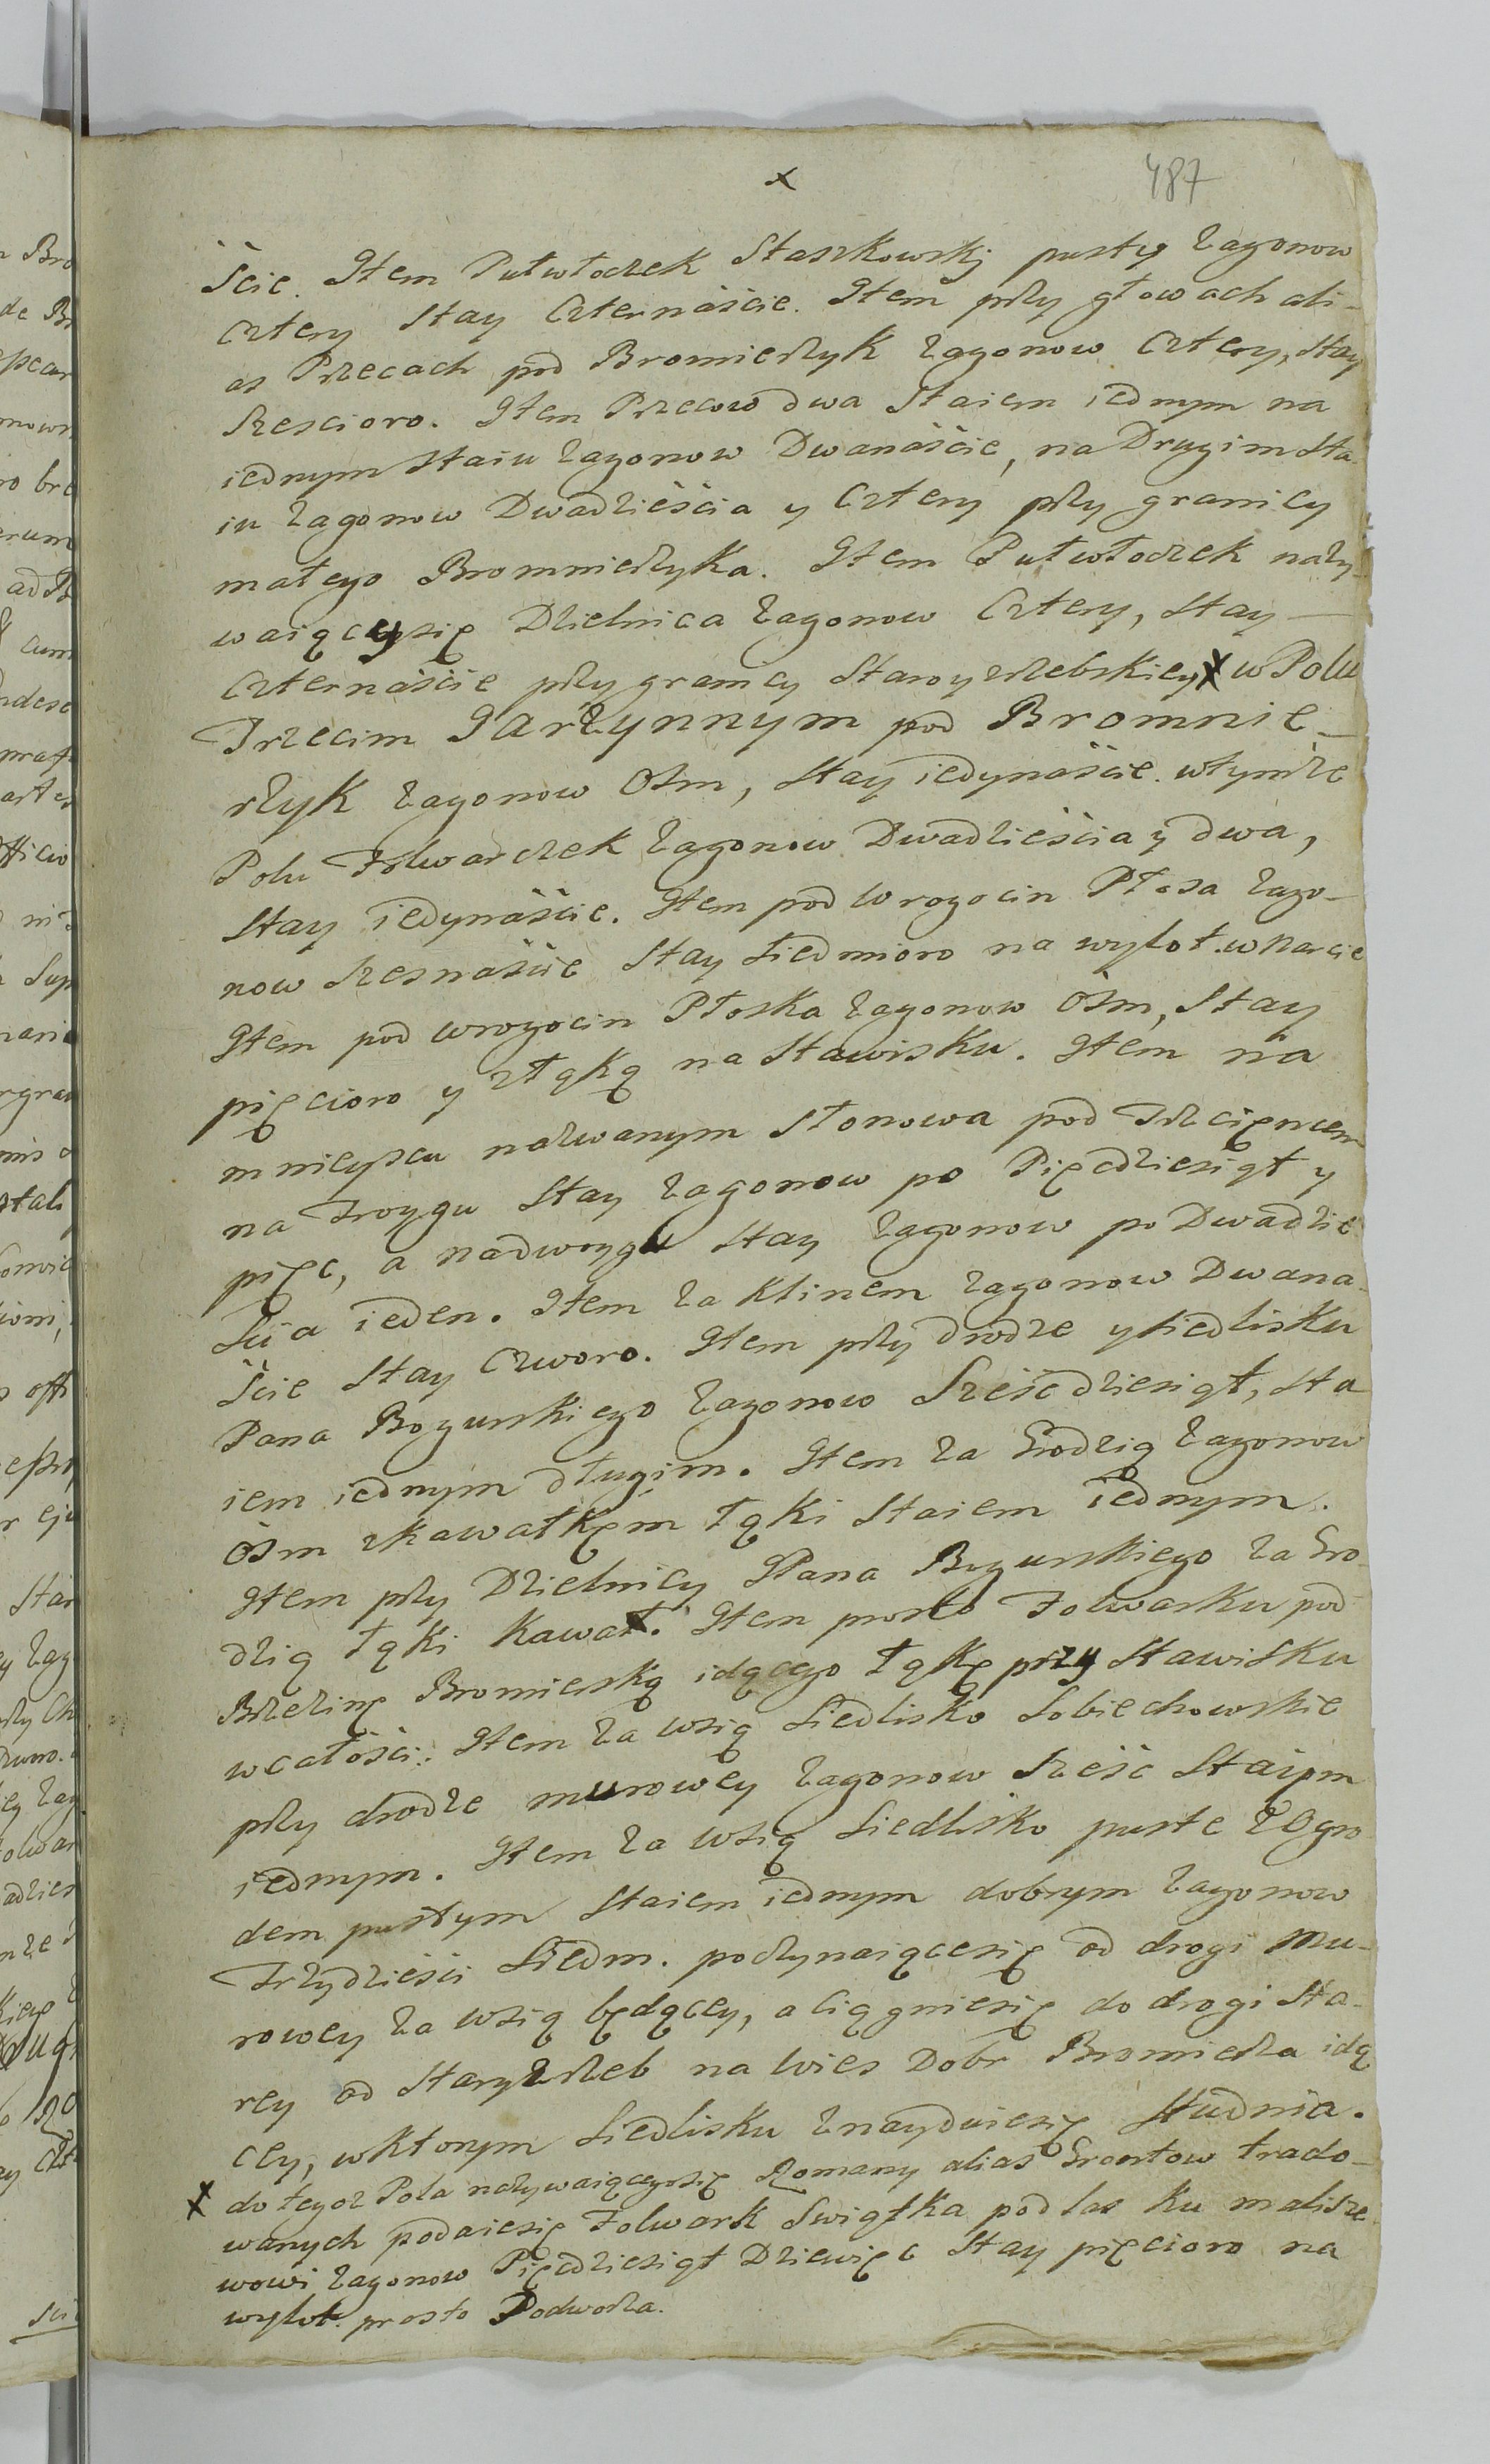 x
487
ście. Item Pułwłoczek Staszkowskj pusty Zagonow
cztery Stay Czternaście. Item przy głowach ali-
as Przecach pod Bromierzyk Zagonow Cztery, Stay
Szescioro. Item Przecow dwa Staiem iednym na
iednym Staiu Zagonow Dwanaście, na Drugim Sta-
iu Zagonow Dwadzieścia y Cztery przy granicy
małego Bromnierzyka. Item Pułwłoczek nazy-
waiącysię Dzielnica Zagonow Cztery, Stay
Czternaście przy granicy Staroyrzebskiey X w Polu
Trzecim Jarzynnym pod Bromnie-
rzyk Zagonow Osm, Stay iedynaście. wtymże
Polu Folwarczek Zagonow Dwadzieścia y dwa,
Stay iedynaście. Item pod Wrogocin Płosa Zago-
now Szesnaście Stay Siedmioro na wylot.
Item pod Wrogocin Płoska Zagonow Ośm, Stay
pięcioro y złąką na Stawisku. Item na
mnieyscu nazwanym Słonowa pod Trzcięncem
na Troygu Stay Zagonow po Pięcdziesiąt y
pięc, a nadwoygu Stay Zagonow po Dwadzie-
ścia ieden. Item Za Klinem Zagonow Dwana-
ście Stay Czworo. Item przy drodze y siedlisku
Pana Bogurskiego Zagonow Sześcdziesiąt, Sta
iem iednym długim. Item Za Grodzią Zagonow
ośm zkawałkęm łąki Staiem iednym.
Item przy Dzielnicy Pana Bogurskiego Za Gro-
dzią łąki Kawał. Item prosto Folwarku pod
Brzezinę Bromierską idącego łąkę przy Stawisku
wcałości. Item Za wsią Siedlisko Sobiechowskie
przy drodze murowey Zagonow Sześć Staięm
iednym. Item Za wsią Siedlisko puste Z Ogro
dem pustym Staiem iednym dobrym Zagonow
Trzydzieści Siedm. poczynaiącesię od drogi Mu-
rowey Za wsią będącey, a ciągniesię do drogi Sta-
rey od Staryzrzeb na Wies Dobr Bromierza idą
cey, wktorym Siedlisku Znayduiesię Studnia.
X do tegoż Pola nazywaiącegosię Romany alias Grontow trado-
wanych podaiesię Folwark Swiątka pod las ku malisze
wowi Zagonow Pięcdziesiąt Dziewięc Stay pięcioro na
wylot. prosto Podworza.